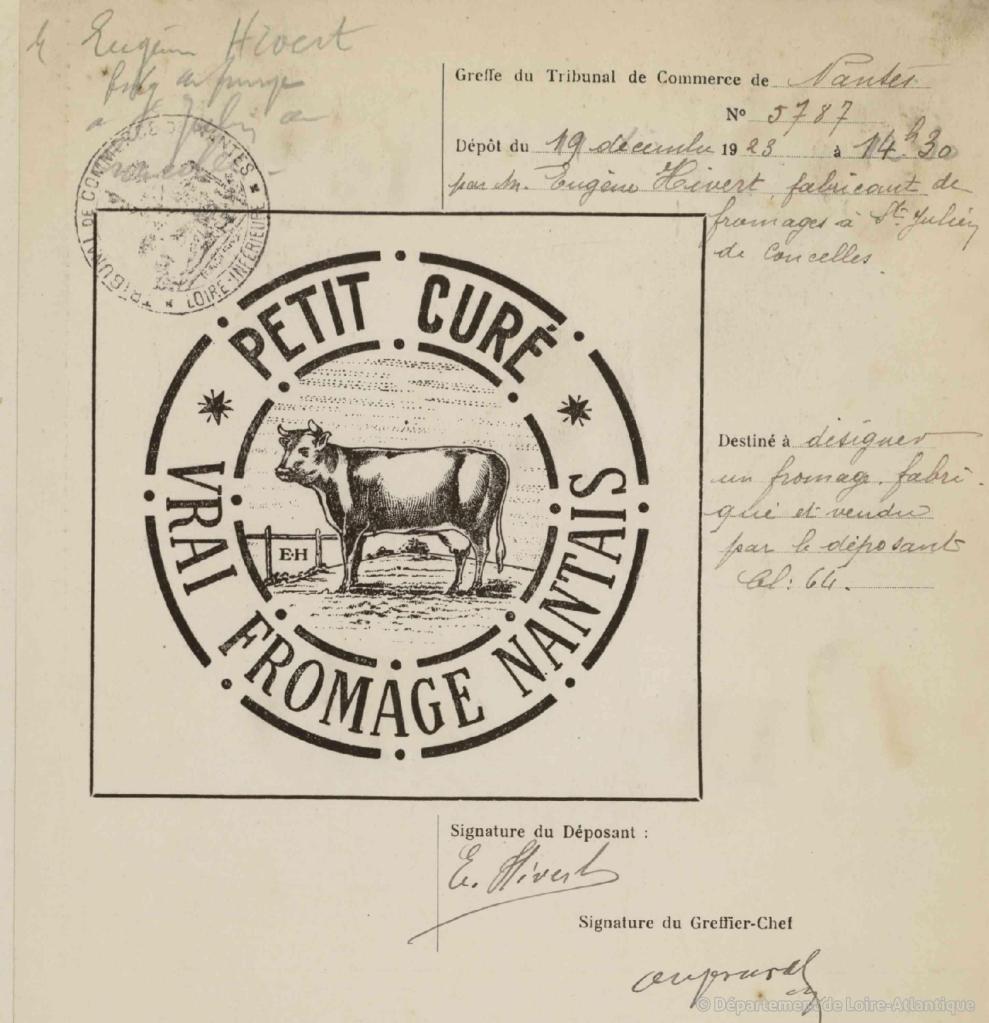 Eugène Hivert
Greffe du Tribunal de Commerce de Nantes
N° 5787
Dépôt du 19 décembre 1923 à 14h30
par M. Eugène Hivert fabricant de
fromages à St Julien
de Concelles.
TRIBUNAL DE COMMERCE DE NANTES
LOIRE-INFÉRIEURE
PETIT CURÉ
VRAI FROMAGE NANTAIS
E·H
Destiné à désigner
un fromage fabri-
qué et vendu
par le déposant
Cl: 64.
Signature du Déposant :
E. Hivert
Signature du Greffier-Chef
© Département de Loire-Atlantique